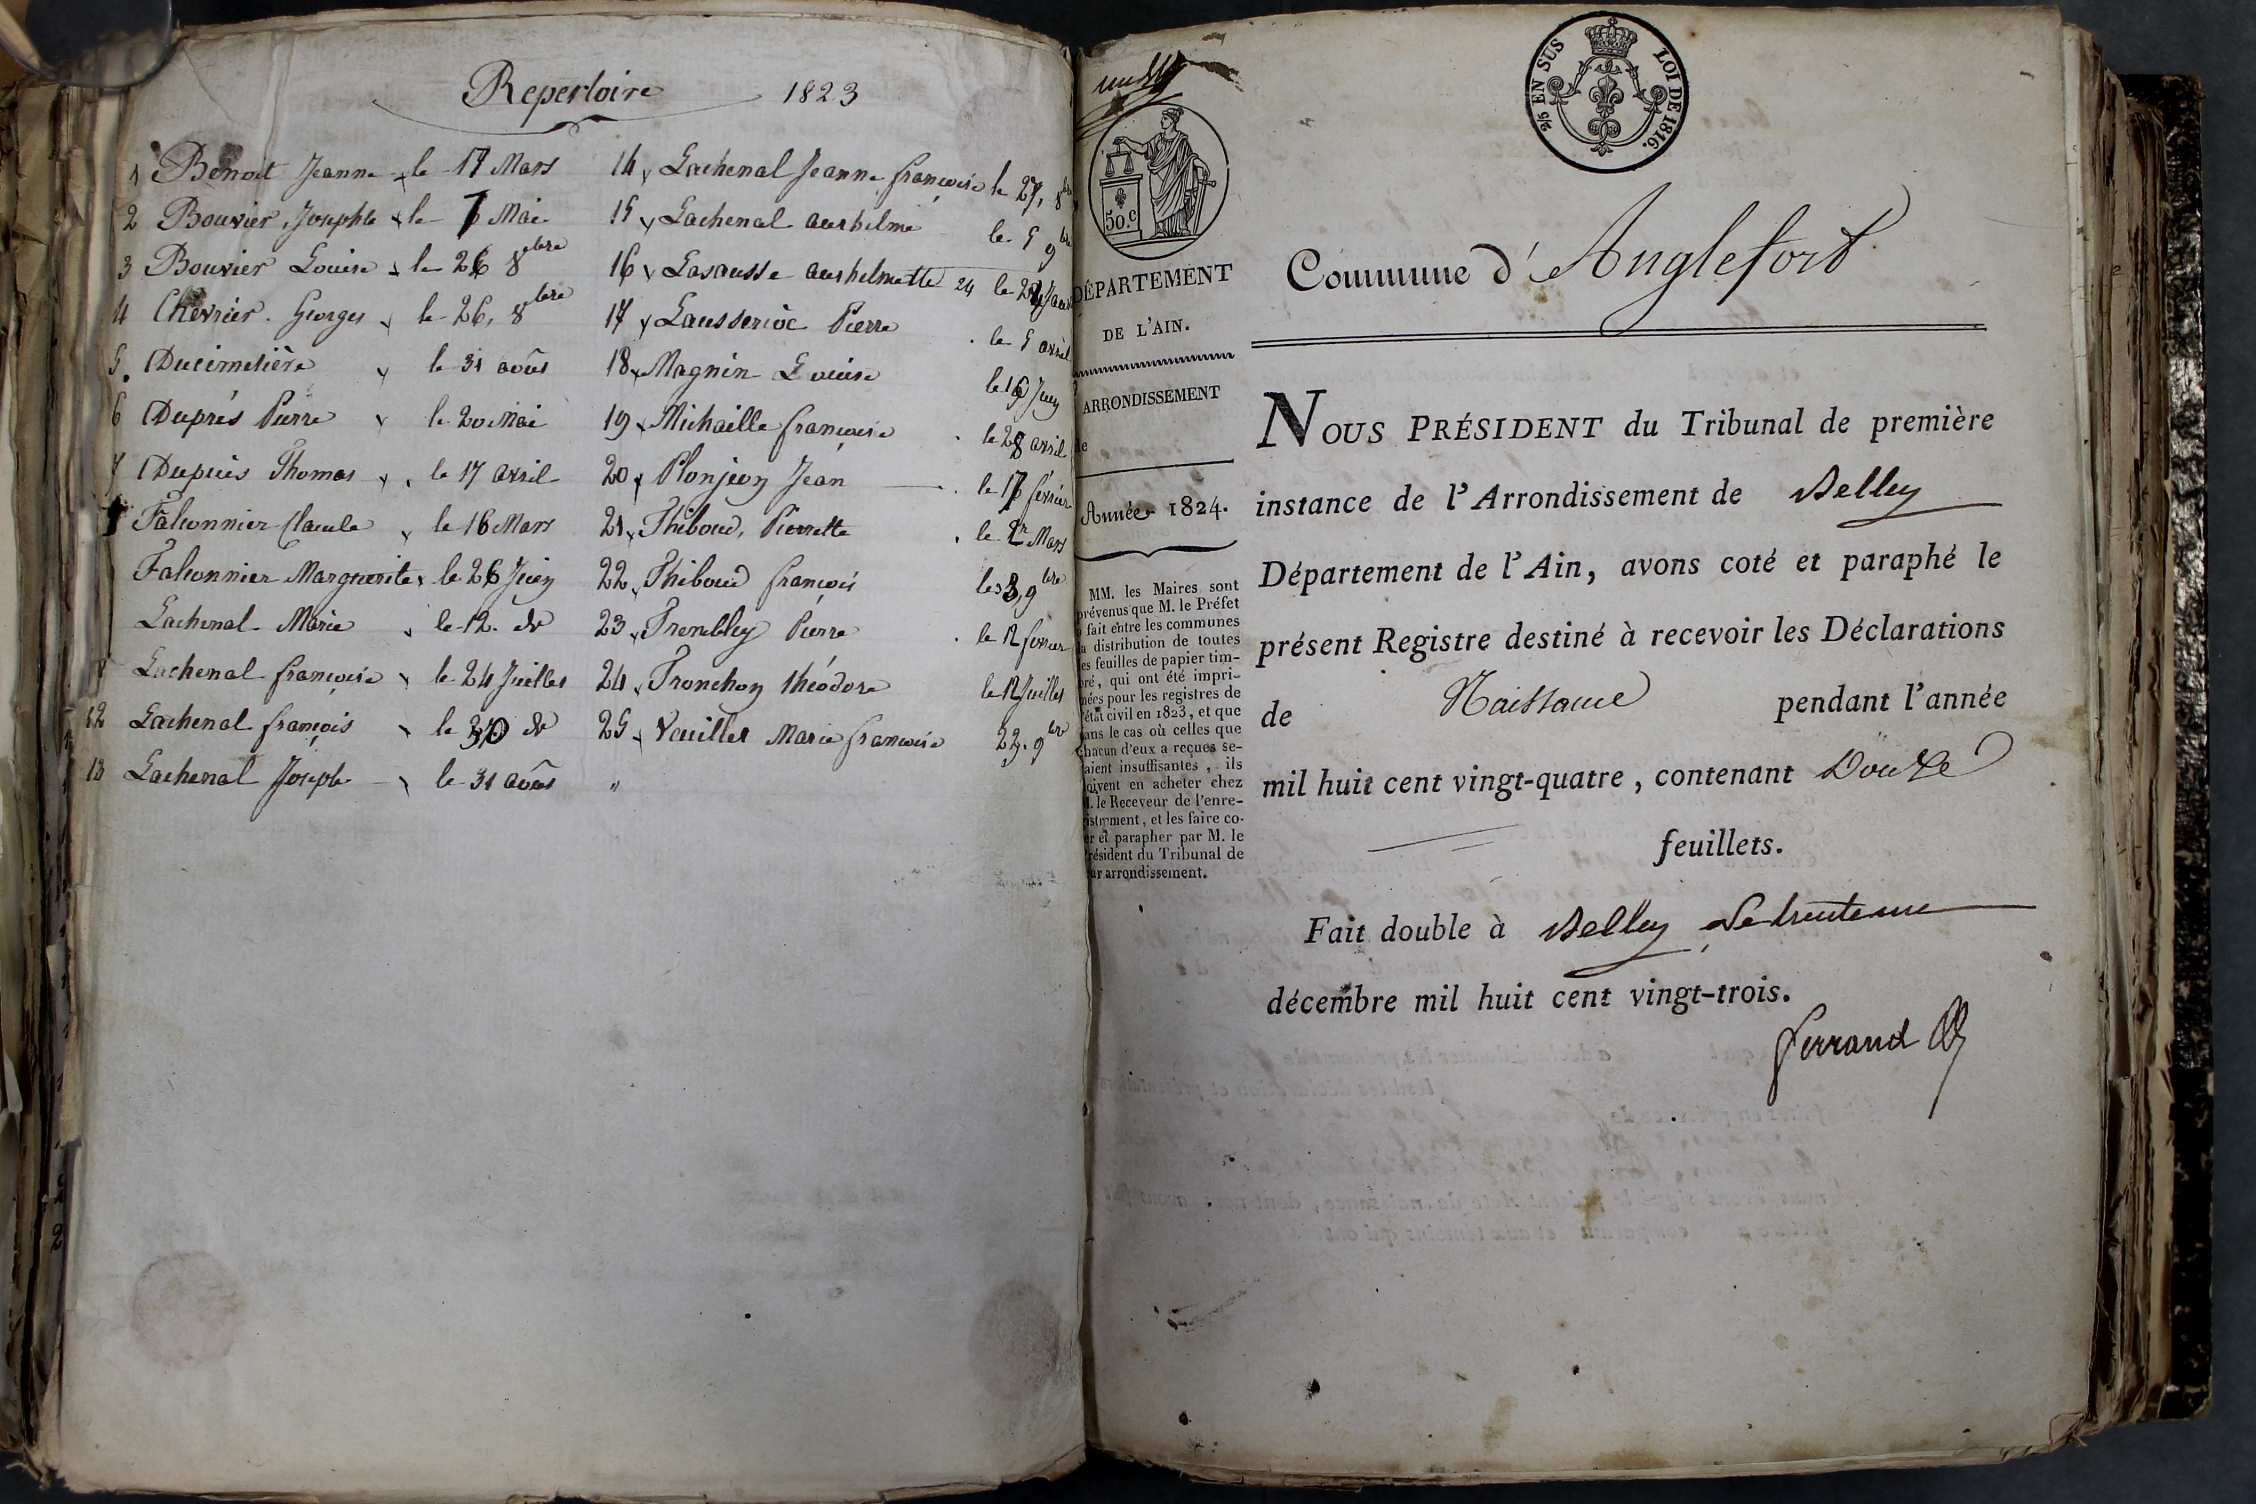 Repertoire 1823
1 Benoit Jeanne x le 17 Mars
2 Bouvier Josephte x le 7 Mai
3 Bouvier Louise x le 26 8bre
4 Chevrier Georges x le 26, 8bre
5. Ducimetière x le 31 août
6 Duprés Pierre x le 20 Mai
7 Dupuis Thomas x le 17 avril
Falconnier Claude x le 16 Mars
Falconnier Marguerite x le 26 Juin
Lachenal Marie x le 12. do
Lachenal françoise x le 24 Juillet
12 Lachenal françois x le 30 do
13 Lachenal Joseph x le 31 août
14 x Lachenal Jeanne françoise le 27, 8bre
15 x Lachenal anthelme le 5 9bre
16 x Lasausse anthelmette 24 le 24 Janv
17 x Lausserioc Pierre le 5 avril
18 x Magnin Louise le 16 Juin
19 x Michaille françoise le 28 avril
20 x Plonjon Jean le 17 février
21 x Thiboud, Pierrette le 1r Mars
22 x Thiboud françois le 3, 9bre
23 x Trembley Pierre le 12 février
24 x Tronchon théodore le 12 Juillet
25 x Vuillet Marie françoise 22. 9bre
"
2/5 EN SUS LOI DE 1816.
50.c
DÉPARTEMENT
DE L'AIN.
ARRONDISSEMENT
de
Année 1824.
MM. les Maires sont
prévenus que M. le Préfet
a fait entre les communes
la distribution de toutes
les feuilles de papier tim-
bré, qui ont été impri-
mées pour les registres de
l'état civil en 1823, et que
dans le cas où celles que
chacun d'eux a reçues se-
raient insuffisantes, ils
doivent en acheter chez
M. le Receveur de l'enre-
gistrement, et les faire co-
ter et parapher par M. le
Président du Tribunal de
leur arrondissement.
Commune d'Anglefort
NOUS PRÉSIDENT du Tribunal de première
instance de l'Arrondissement de Belley
Département de l'Ain, avons coté et paraphé le
présent Registre destiné à recevoir les Déclarations
de Naissance pendant l'année
mil huit cent vingt-quatre, contenant Douze
feuillets.
Fait double à Belley Le trente une
décembre mil huit cent vingt-trois.
ferrand